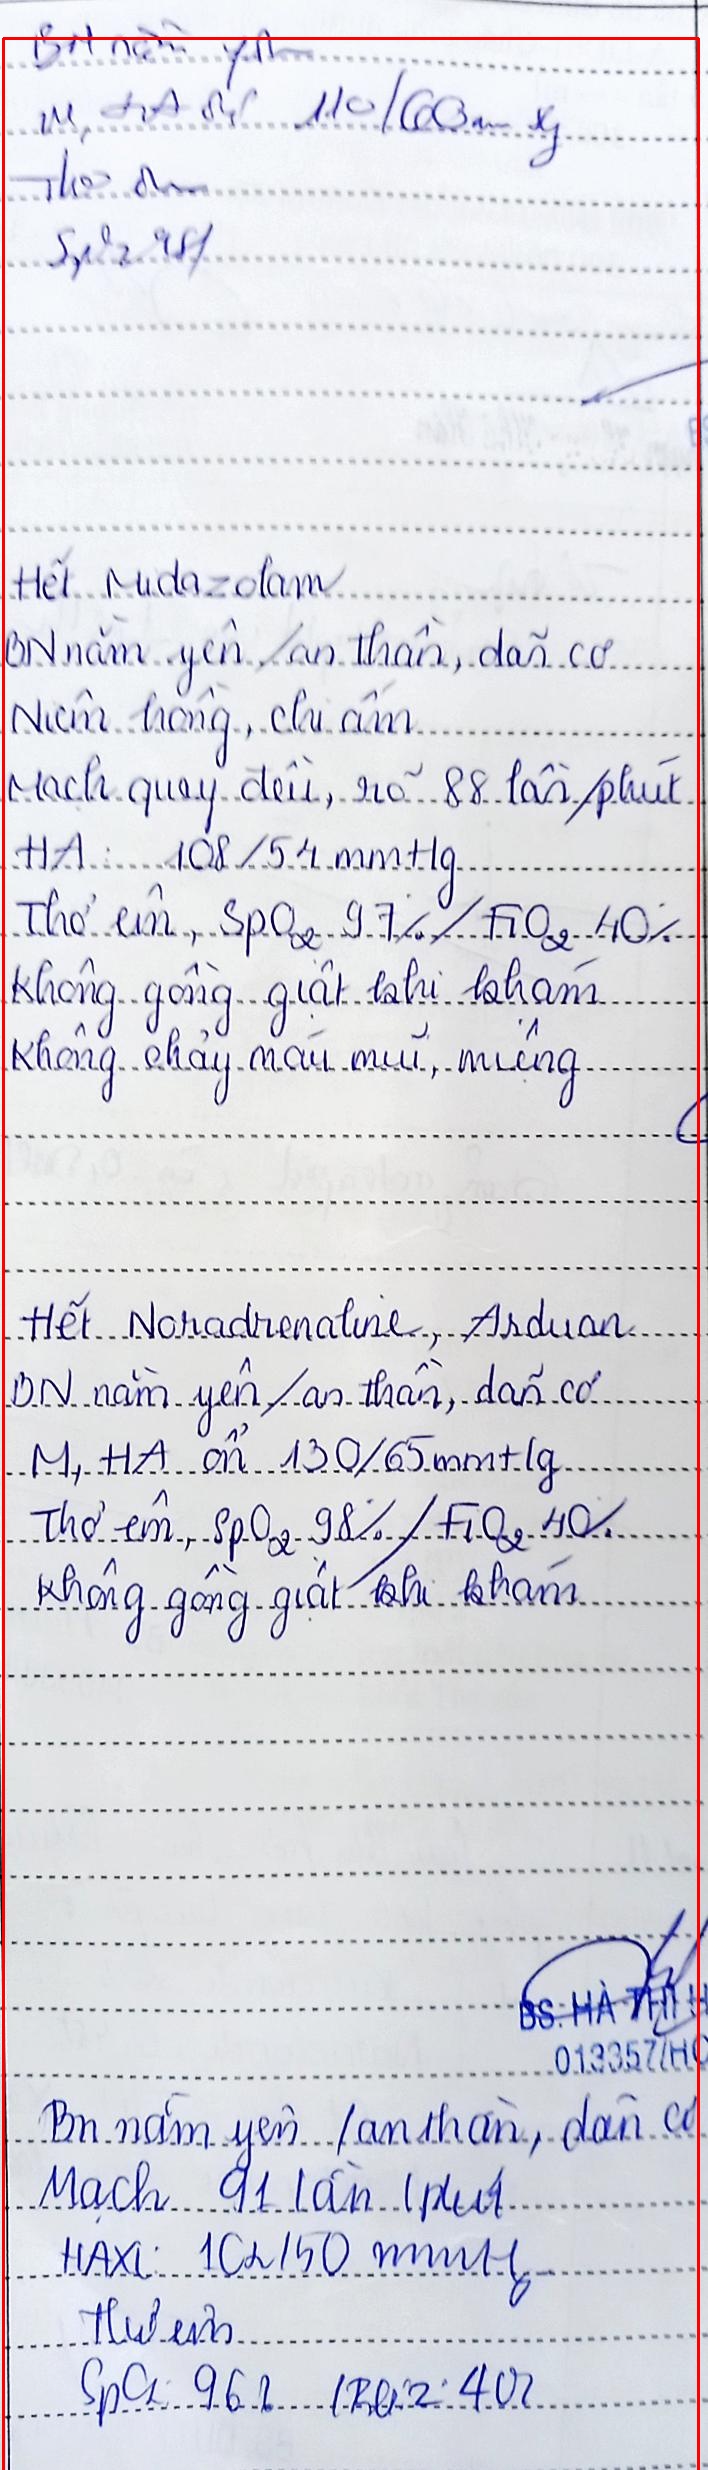 BN nằm yên
M, HA ổn 110/60mmHg
Thở êm
SpO2 98%
Hết Midazolam
BN nằm yên / an thần, dãn cơ
Niêm hồng, chi ấm
Mạch quay đều, rõ 88 lần/phút
HA: 108/54 mmHg
Thở êm, SpO2 97% / FiO2 40%
Không gồng giật khi khám
Không chảy máu mũi, miệng
Hết Noradrenaline, Arduan
BN nằm yên / an thần, dãn cơ
M, HA ổn 130/65mmHg
Thở êm, SpO2 98% / FiO2 40%
Không gồng giật khi khám
BS. HÀ THỊ H
013357/HC
Bn nằm yên / an thần, dãn cơ
Mạch 91 lần/phút
HAXL: 102/50 mmHg
Thở êm
SpO2: 96%